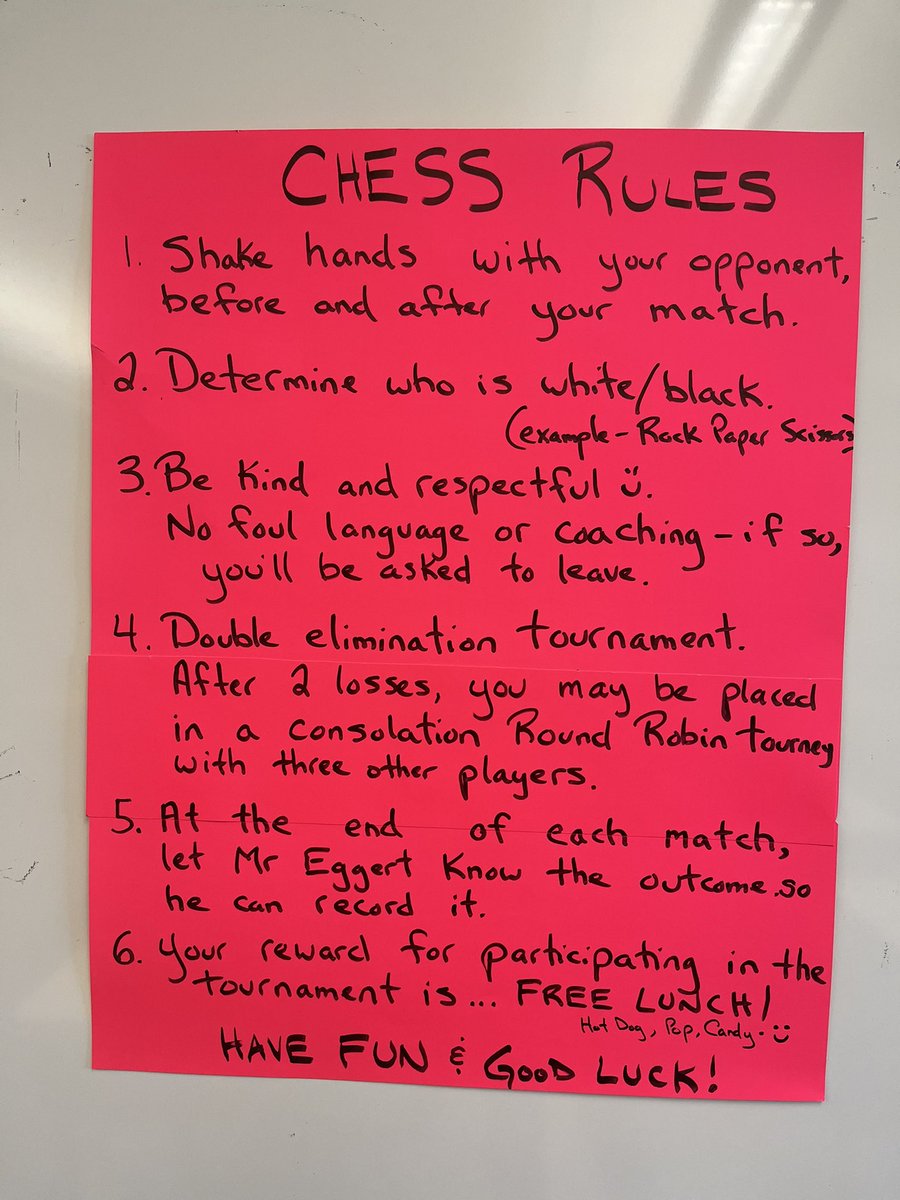 CHESS RULES
1. Shake hands with your opponent,
before and after your match.
2. Determine who is white/black.
(example - Rock Paper Scissors)
3. Be Kind and respectful :).
No foul language or coaching - if so,
you'll be asked to leave.
4. Double elimination tournament.
After 2 losses, you may be placed
in a consolation Round Robin tourney
with three other players.
5. At the end of each match,
let Mr Eggert Know the outcome so
he can record it.
6. Your reward for participating in the
tournament is... FREE LUNCH!
Hot Dog, Pop, Candy. :)
HAVE FUN & GOOD LUCK!